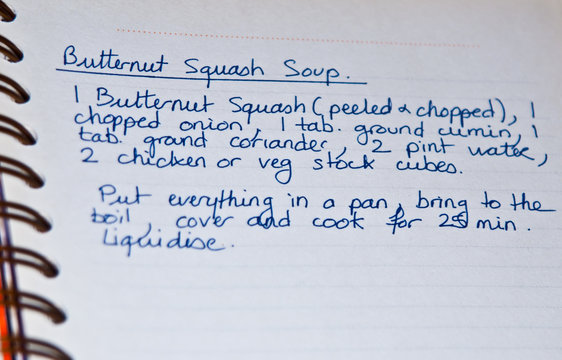 Butternut Squash Soup.
1 Butternut Squash (peeled & chopped), 1
chopped onion, 1 tab. ground cumin, 1
tab. grond coriander, 2 pint water,
2 chicken or veg stock cubes.
Put everything in a pan, bring to the
boil, cover and cook for 25 min.
Liquidise.